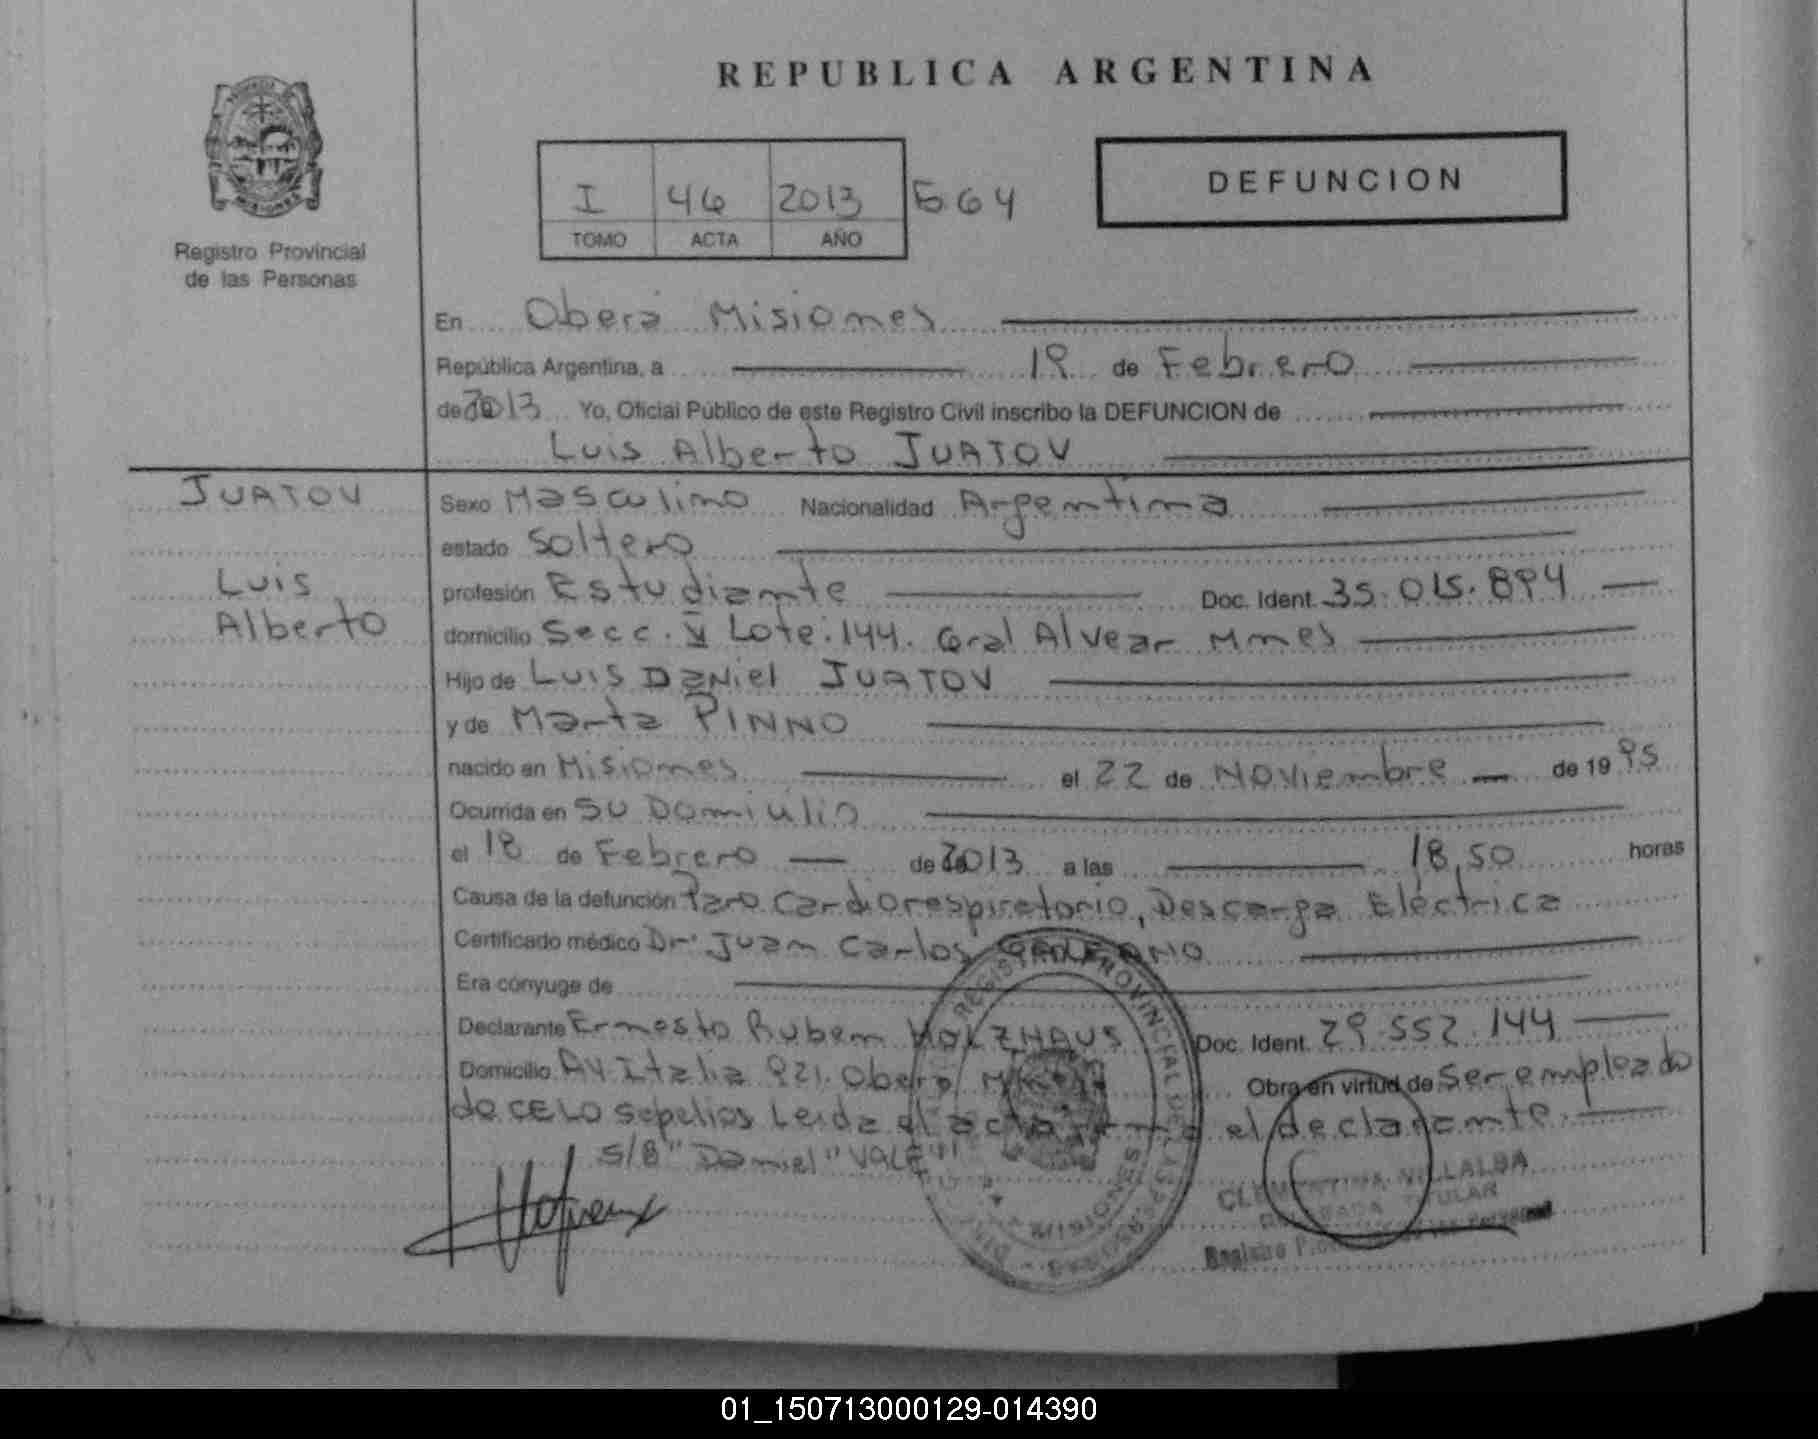 REPUBLICA ARGENTINA
Registro Provincial
de las Personas
I 46 2013 564
TOMO ACTA AÑO
DEFUNCION
En Oberá Misiones
República Argentina, a 19 de Febrero
de 2013 Yo, Oficial Público de este Registro Civil inscribo la DEFUNCION de
Luis Alberto JUATOV
JUATOV
Luis
Alberto
Sexo Masculino Nacionalidad Argentina
estado Soltero
profesión Estudiante Doc. Ident. 35.015.894
domicilio Secc. V Lote:144. Gral Alvear Mnes
Hijo de Luis Daniel JUATOV
y de Marta PINNO
nacido en Misiones el 22 de Noviembre de 1995
Ocurrida en su Domicilio
el 18 de Febrero de 2013 a las 18,50 horas
Causa de la defunción Paro Cardiorespiratorio, Descarga Eléctrica
Certificado médico Dr. Juan Carlos
Era cónyuge de
Declarante Ernesto Ruben HOLZHAUS Doc. Ident. 29.552.144
Domicilio Av Italia 921. Oberá Obra en virtud de Ser empleado
de CELO Sepelios Leida el acta el declarante.
S/B "Daniel" VALE
REGISTRO PROVINCIAL DE LAS PERSONAS
MISIONES
CLEMENTINA VILLALBA
DELEGADA TITULAR
01_150713000129-014390